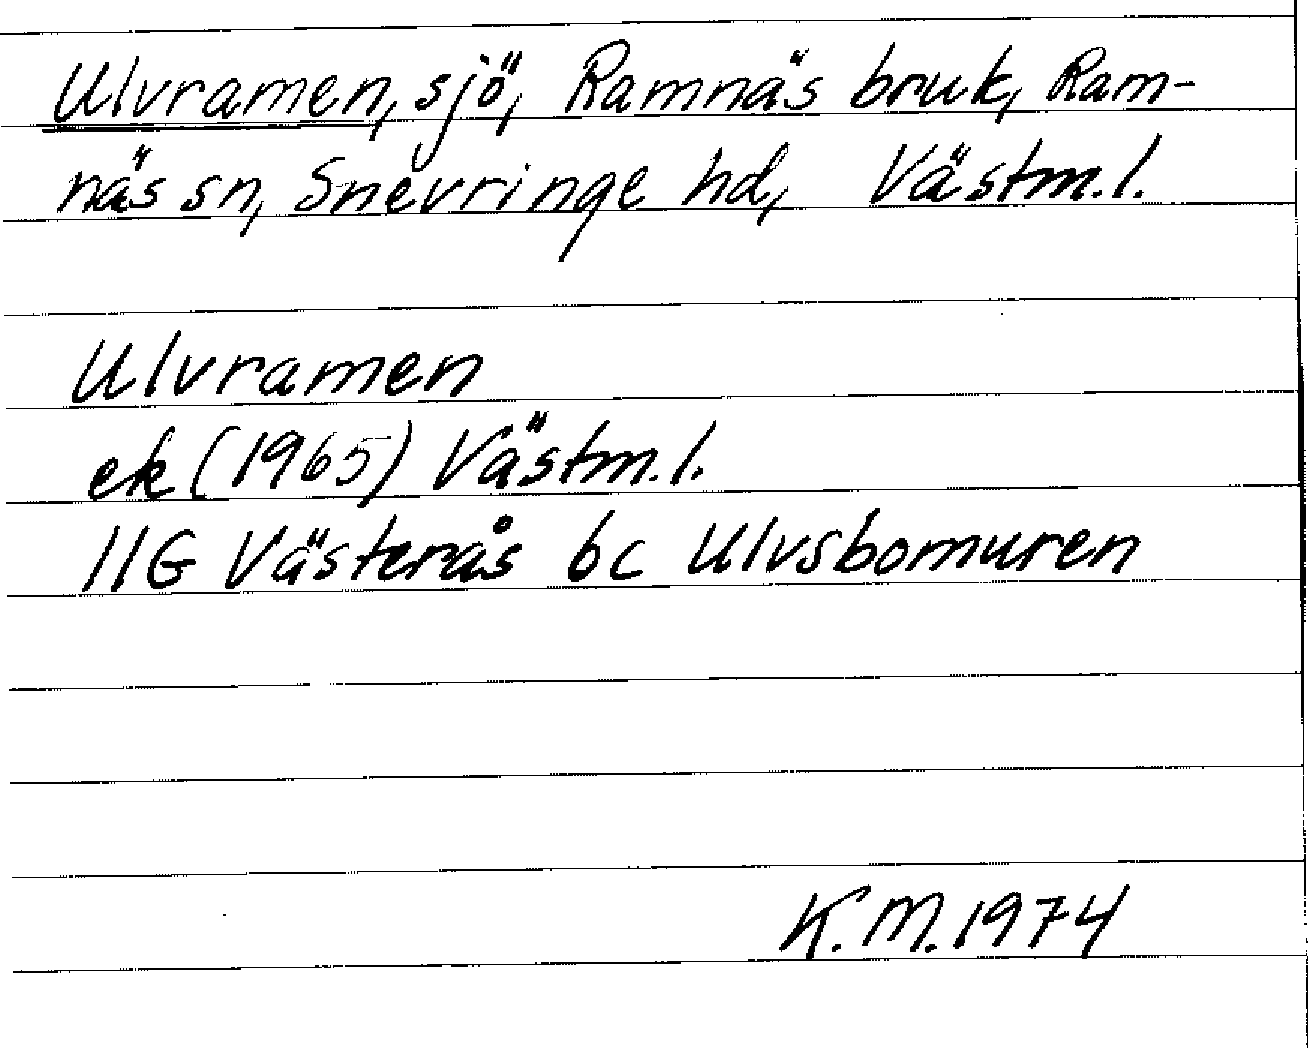 Ulvramen, sjö, Ramnäs bruk, Ram-
näs sn, Snevringe hd, Västm.l.
Ulvramen
ek (1965) Västm.l.
11G Västerås 6c Ulvsbomuren
K.M. 1974